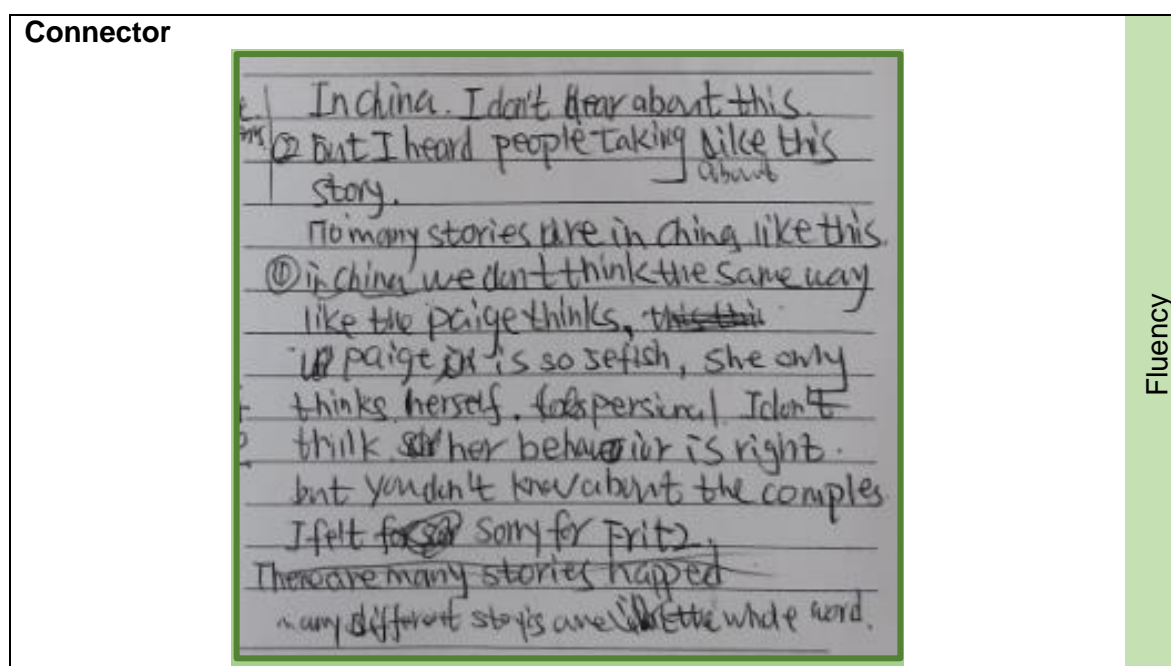 Connector
In China. I don't hear about this.
② But I heard people taking like this
about
story.
no many stories are in China like this.
① in China we don't think the same way
like the paige thinks,
paige is so sefish, she only
thinks herself. persinal I don't
think her behavior is right.
but you don't know about the comples
I felt sorry for Fritz.
There are many stories happed
many different storys are the whole word.
Fluency